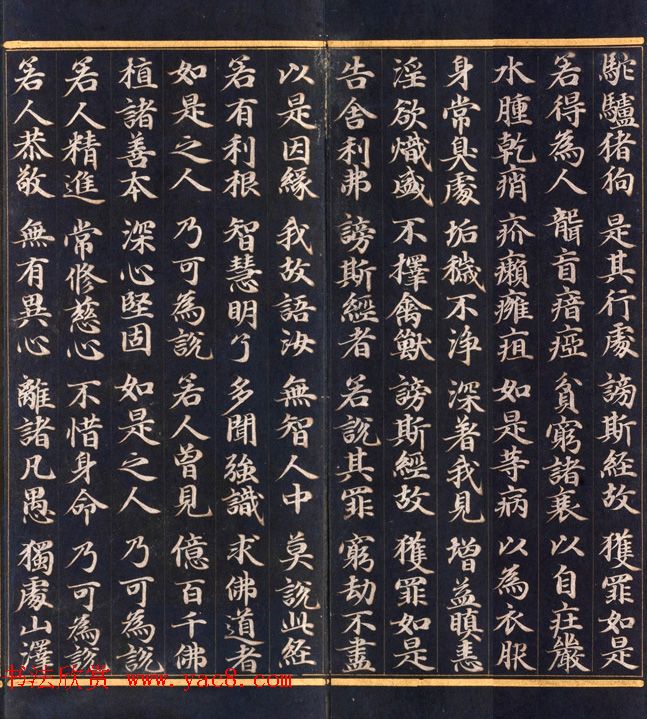 駝驢猪狗 是其行處 謗斯経故 獲罪如是
若得為人 聾盲瘖瘂 貧窮諸衰 以自莊嚴
水腫乾痟 疥癩癰疽 如是等病 以為衣服
身常臭處 垢穢不浄 深著我見 增益瞋恚
淫欲熾盛 不擇禽獸 謗斯経故 獲罪如是
告舍利弗 謗斯経者 若説其罪 窮劫不盡
以是因緣 我故語汝 無智人中 莫説此経
若有利根 智慧明了 多聞強識 求佛道者
如是之人 乃可為説 若人曾見 億百千佛
植諸善本 深心堅固 如是之人 乃可為説
若人精進 常修慈心 不惜身命 乃可為説
若人恭敬 無有異心 離諸凡愚 獨處山澤
书法欣赏 www.yac8.com